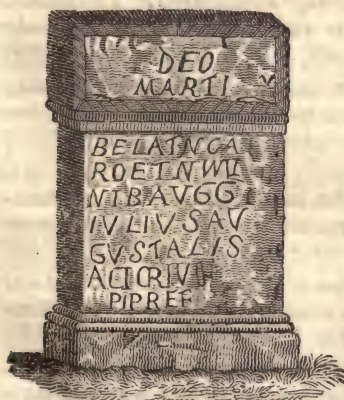 DEO
MARTI
BELATNCA
ROETNWU
NTBAVGG
IVLIVSAV
GVSTALIS
ACTORIVII
PIPREF